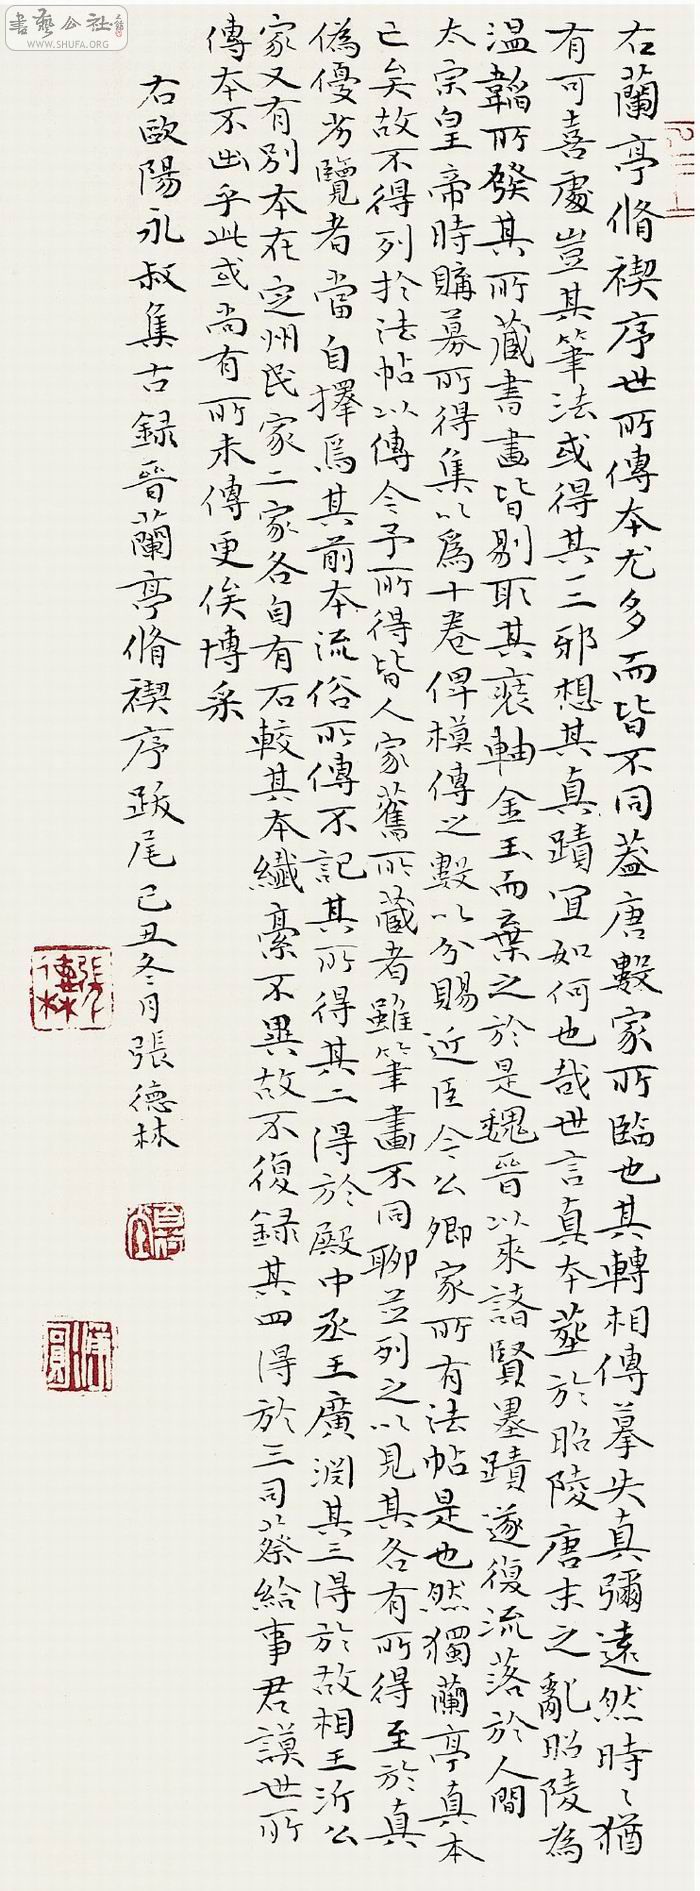 書藝公社
WWW.SHUFA.ORG
右蘭亭脩禊序世所傳本尤多而皆不同葢唐數家所臨也其轉相傳摹失真彌遠然時〻猶
有可喜處豈其筆法或得其一二邪想其真蹟宜如何也哉世言真本葬於昭陵唐末之亂昭陵為
温韜所發其所藏書畫皆剔取其裝軸金玉而棄之於是魏晉以來諸賢墨蹟遂復流落於人間
太宗皇帝時購募所得集以為十卷俾模傳之數以分賜近臣今公卿家所有法帖是也然獨蘭亭真本
亡矣故不得列於法帖以傳今予所得皆人家舊所藏者雖筆畫不同聊並列之以見其各有所得至於真
偽優劣覽者當自擇焉其前本流俗所傳不記其所得其二得於殿中丞王廣淵其三得於故相王沂公
家又有別本在定州民家二家各自有石較其本纖豪不異故不復録其四得於三司蔡給事君謨世所
傳本不出乎此或尚有所未傳更俟博采
右歐陽永叔集古録晉蘭亭脩禊序跋尾己丑冬月張德林
張德林印